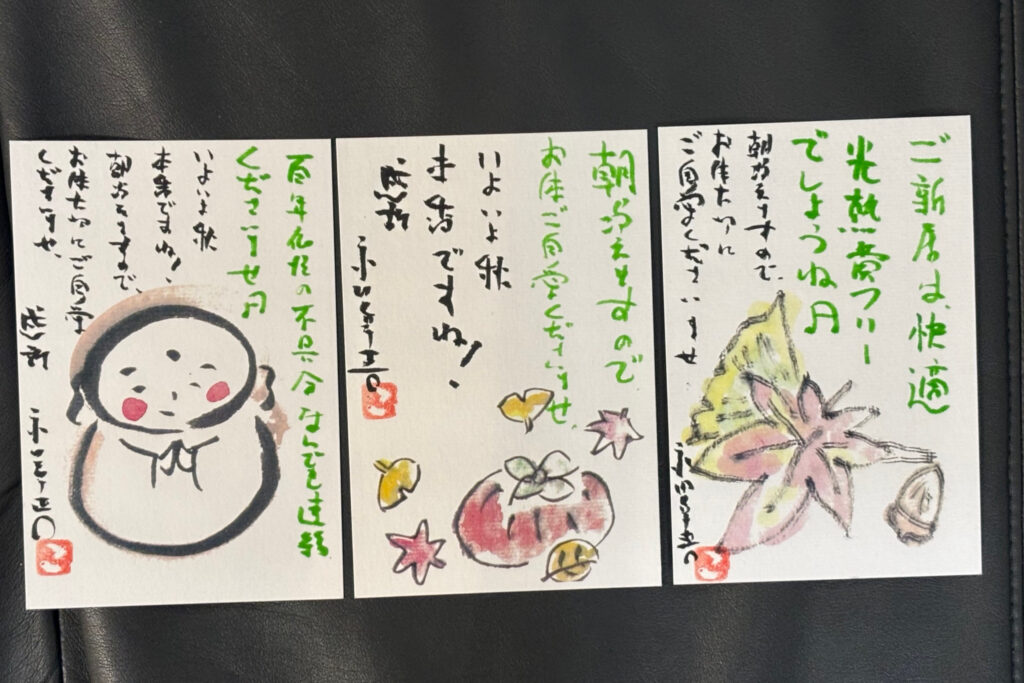 ご新居は、快適
光熱費フリー
でしょうね
朝冷えますので
お体大切に
ご自愛くださいませ
朝冷えますので
お体ご自愛くださいませ。
いよいよ秋
本番ですね!
感謝
百年住宅の不具合なんでも連絡
くださいませ
いよいよ秋
本番ですね!
朝冷えますので、
お体大切にご自愛
くださいませ。
感謝